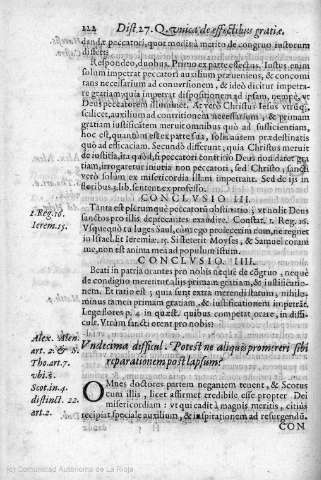 222 Dist 27. Q. vnica de effectibus gratiæ.
dandæ peccatori, quot merita merito de congruo iustorum
differt.
Respondeo, duobus. Primo ex parte effectus. Iustus enim
solum impetrat peccatori auxilium præueniens, & concomi
tans necessarium ad conuersionem, & ideo dicitur impetra-
re gratiam quia impetrat dispositionem ad ipsam, nempè, vt
Deus peccatorem illuminet. At verò Christus Iesus vtrūq;
scilicet, auxiliū ad contritionem necessarium, & primam
gratiam iustificātē meruit omnibus quò ad sufficientiam,
hoc est, quantum est ex parte sua, solis autem prædestinatis
quò ad efficaciam. Secundò differunt, quia Christus meruit
de iustitia, ita quòd, si peccatori contrito Deus non daret gra
tiam, irrogaretur iniuria non peccatori, sed Christo, sancti
verò solum ex misericordia illam impetrant. Sed de ijs in
floribus 3. lib. sententiæ ex professo.
CONCLVSIO III.
1. Reg. 16.
Ierem. 15.
Tanta est plerumquè peccatoris obstinatio, vt nolit Deus
sanctos pro illis deprecantes exaudire. Constat 1. Reg. 16.
Vsquequò tu luges Saul, cùm ego proiecerim eum, ne regnet
in Israel. Et Ieremiæ. 15. Si steterit Moyses, & Samuel coram
me, non est anima mea ad populum istum.
CONCLVSIO IIII.
Beati in patria orantes pro nobis nequè de cōgruo, nequè
de condigno merentur alijs primam gratiam, & iustificatio-
nem. Et ratio est; quia sunt extra merendi statum, nihilo-
minus tamen primam gratiam, & iustificationem impetrāt.
Lege flores p. 4. in quæst. quibus competat orare, in diffi-
cul. Vtrum sancti orent pro nobis?
Alex. Alen.
art. 2. & 8.
Tho. art. 7.
vbi. s.
Scot. in. 4.
distinct. 22.
art. 2.
Vndecima difficul. Potest ne aliquis promereri sibi
reparationem post lapsum?
OMnes doctores partem negantem tenent, & Scotus
cum illis, licet affirmet credibile esse propter Dei
misericordiam: vt qui cadit à magnis meritis, citius
recipiat speciale auxilium, & inspirationem ad resurgendū.
CON
(c) Comunidad Autónoma de La Rioja